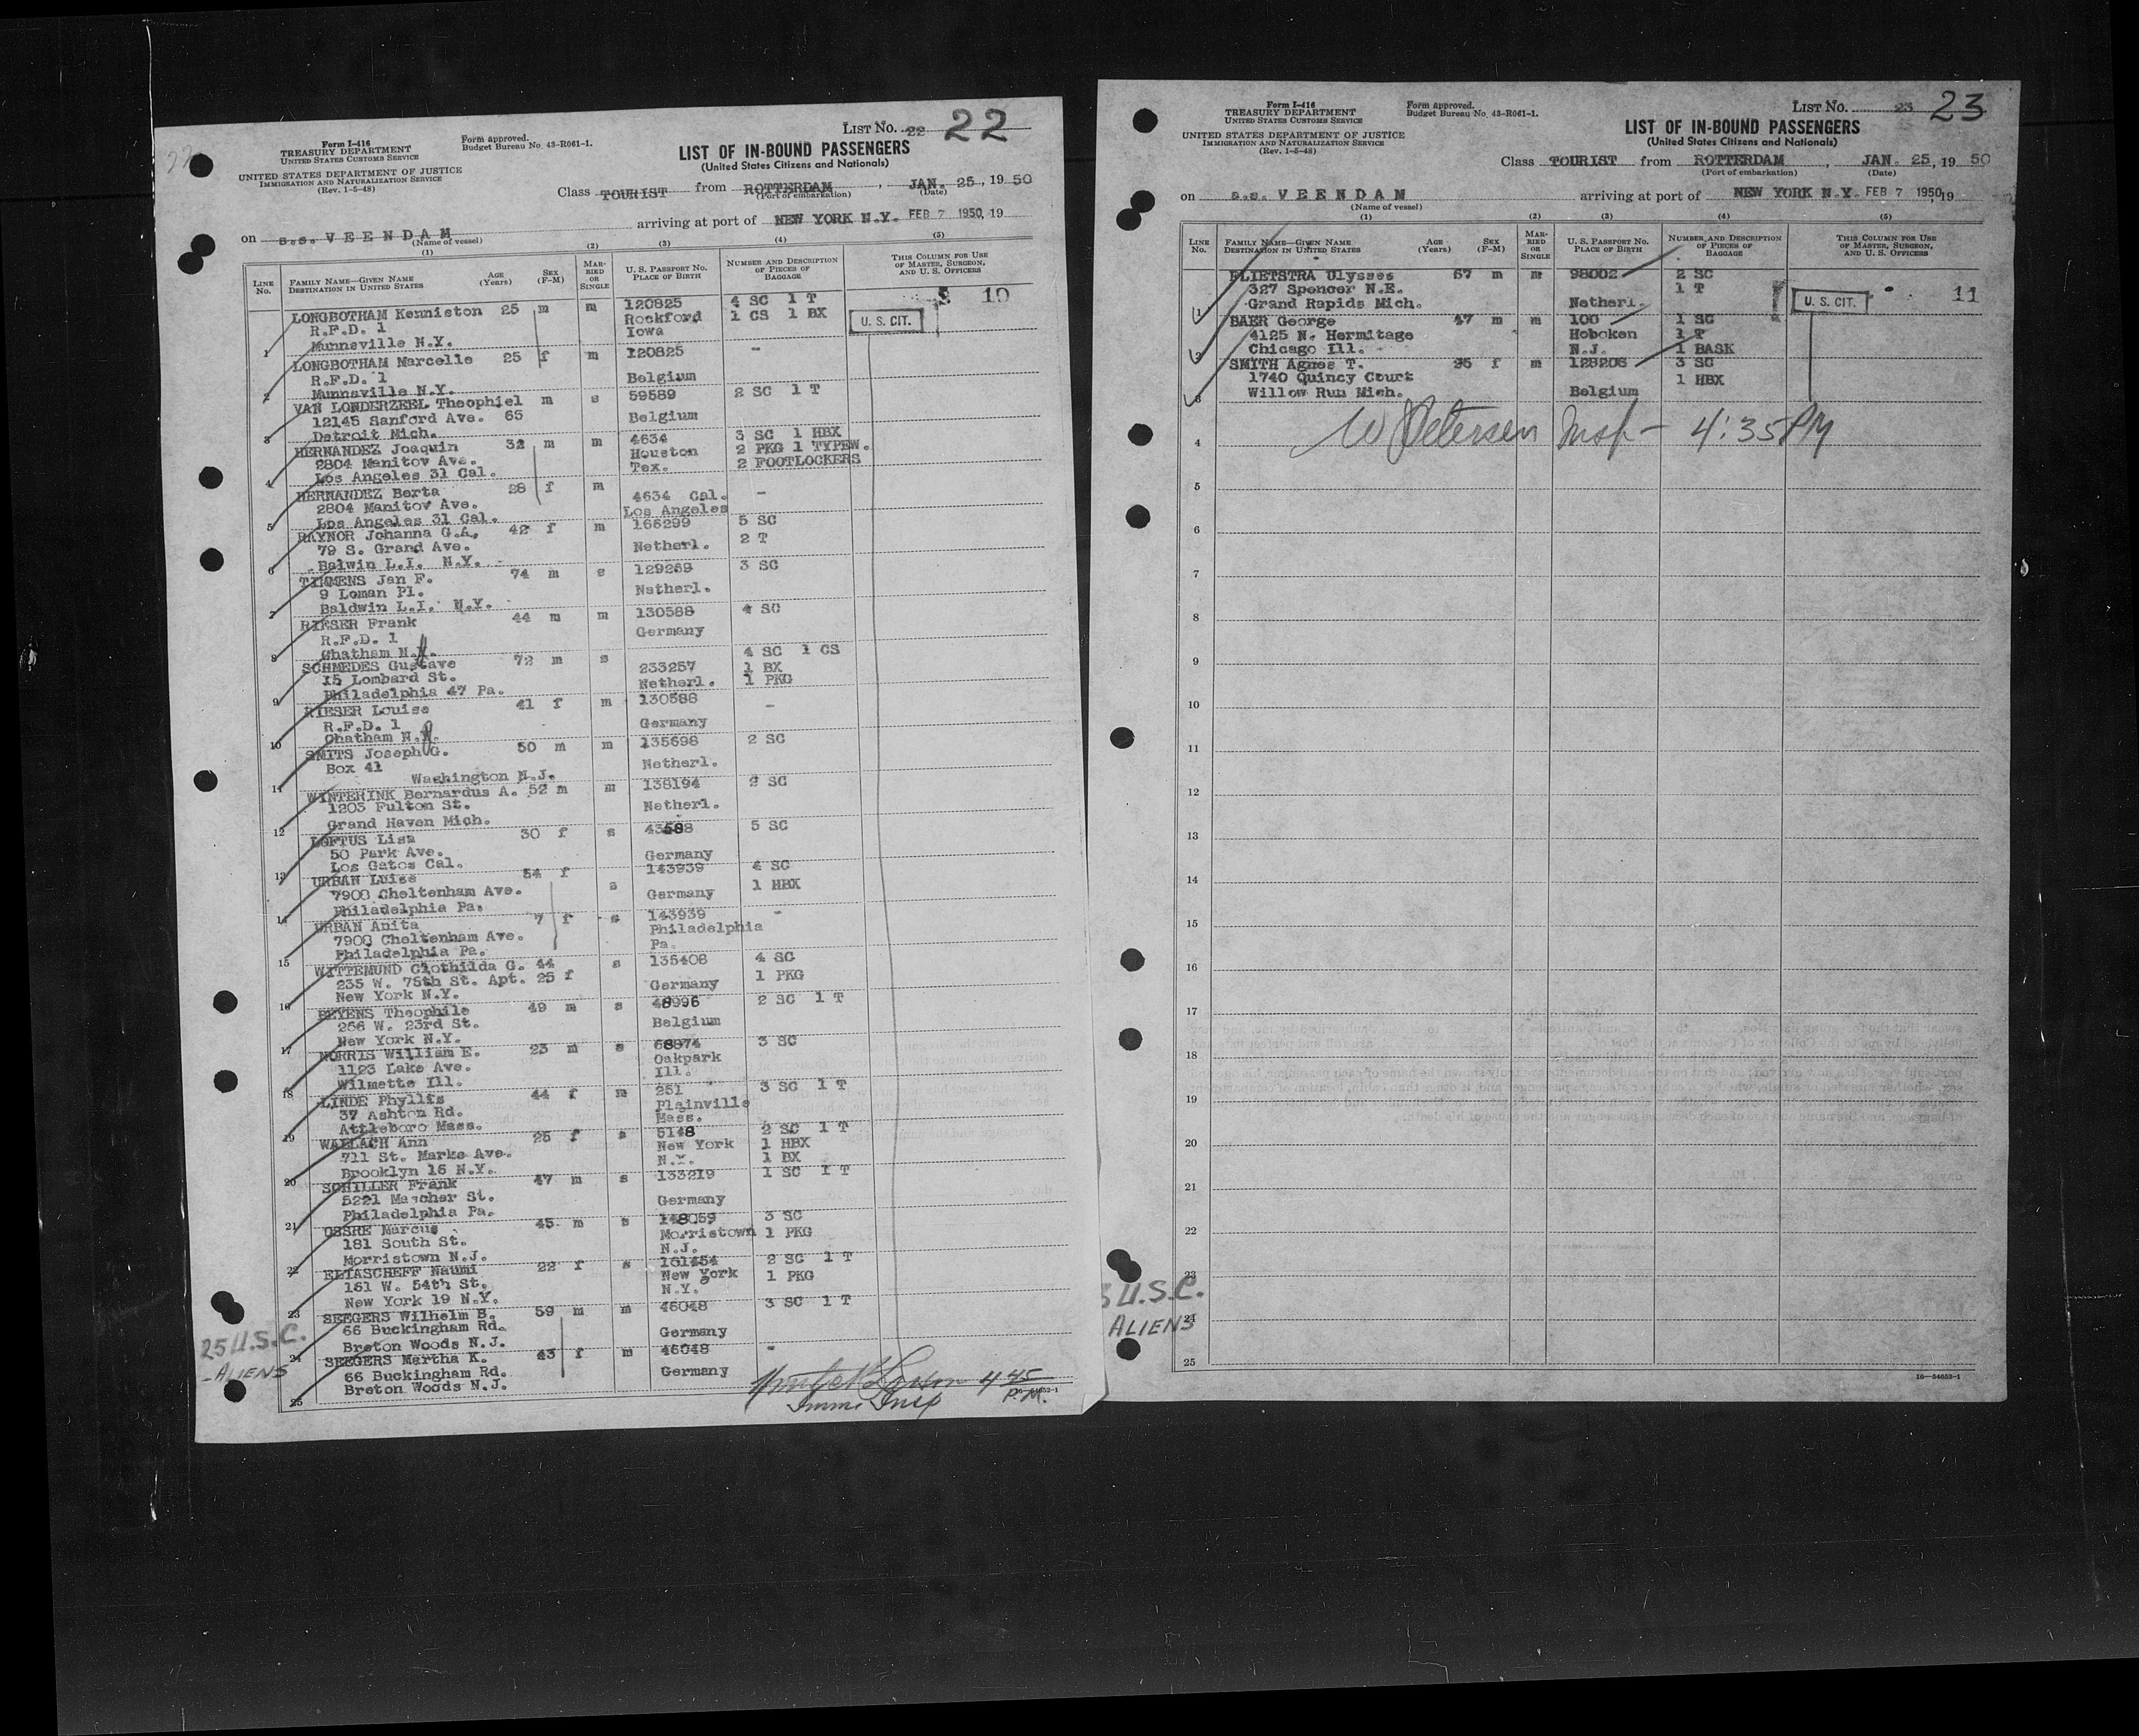 Form I-416
TREASURY DEPARTMENT
UNITED STATES CUSTOMS SERVICE
UNITED STATES DEPARTMENT OF JUSTICE
IMMIGRATION AND NATURALIZATION SERVICE
(Rev. 1-5-48)
Form approved.
Budget Bureau No. 43-R061-1.
LIST No. 22 22
LIST OF IN-BOUND PASSENGERS
(United States Citizens and Nationals)
Class TOURIST from ROTTERDAM, JAN. 25, 1950
(Port of embarkation) (Date)
on s.s. VEENDAM arriving at port of NEW YORK N.Y. FEB 7 1950, 19
(Name of vessel)
(1) (2) (3) (4) (5)
LINE No. FAMILY NAME—GIVEN NAME DESTINATION IN UNITED STATES AGE (Years) SEX (F-M) MARRIED OR SINGLE U. S. PASSPORT NO. PLACE OF BIRTH NUMBER AND DESCRIPTION OF PIECES OF BAGGAGE THIS COLUMN FOR USE OF MASTER, SURGEON, AND U. S. OFFICERS
10
U. S. CIT.
LONGBOTHAM Kenniston 25 m m 120825 4 SC 1 T
R.F.D. 1 Rockford 1 CS 1 BX
1 Munnsville N.Y. Iowa
LONGBOTHAM Marcelle 25 f m 120825 -
R.F.D. 1 Belgium
2 Munnsville N.Y.
VAN LONDERZEEL Theophiel m s 59589 2 SC 1 T
12145 Sanford Ave. 65 Belgium
3 Detroit Mich.
HERNANDEZ Joaquin 32 m m 4634 3 SC 1 HBX
2804 Manitov Ave. Houston 2 PKG 1 TYPEW.
4 Los Angeles 31 Cal. Tex. 2 FOOTLOCKERS
HERNANDEZ Berta 28 f m 4634 Cal. -
2804 Manitov Ave. Los Angeles
5 Los Angeles 31 Cal.
RAYNOR Johanna G.A. 42 f m 166299 5 SC
79 S. Grand Ave. Netherl. 2 T
6 Balwin L.I. N.Y.
TIMMENS Jan F. 74 m s 129259 3 SC
9 Loman Pl. Netherl.
7 Baldwin L.I. N.Y.
RIESER Frank 44 m m 130588 4 SC
R.F.D. 1 Germany
8 Chatham N.
SCHMEDES Gustave 72 m s 233257 4 SC 1 CS
15 Lombard St. Netherl. 1 BX
9 Philadelphia 47 Pa. 1 PKG
RIESER Louise 41 f m 130588 -
R.F.D. 1 Germany
10 Chatham N.
SMITS Joseph G. 50 m m 135698 2 SC
Box 41 Netherl.
11 Washington N.J.
WINTERINK Bernardus A. 52 m m 138194 2 SC
1203 Fulton St. Netherl.
12 Grand Haven Mich.
LOFTUS Lisa 30 f s 43588 5 SC
50 Park Ave. Germany
13 Los Gatos Cal.
URBAN Luise 54 f s 143939 4 SC
7900 Cheltenham Ave. Germany 1 HBX
14 Philadelphia Pa.
URBAN Anita 7 f s 143939 -
7900 Cheltenham Ave. Philadelphia
15 Philadelphia Pa. Pa.
WITTEMUND Clothilda G. 44 s 135408 4 SC
235 W. 75th St. Apt. 25 f Germany 1 PKG
16 New York N.Y.
BEYENS Theophile 49 m s 48996 2 SC 1 T
256 W. 23rd St. Belgium
17 New York N.Y.
NORRIS William E. 23 m s 68874 3 SC
1123 Lake Ave. Oakpark
18 Wilmette Ill. Ill.
LINDE Phyllis 44 f m 251 3 SC 1 T
37 Ashton Rd. Plainville
19 Attleboro Mass. Mass.
WALLACH Ann 25 f s 5148 2 SC 1 T
711 St. Marks Ave. New York 1 HBX
20 Brooklyn 16 N.Y. N.Y. 1 BX
SCHILLER Frank 47 m s 133219 1 SC 1 T
5221 Mascher St. Germany
21 Philadelphia Pa.
OSSRE Marcus 45 m s 148059 3 SC
181 South St. Morristown 1 PKG
22 Morristown N.J. N.J.
ELIASCHEFF Naumi 22 f s 151454 2 SC 1 T
161 W. 54th St. New York 1 PKG
23 New York 19 N.Y. N.Y.
SEEGERS Wilhelm B. 59 m m 46048 3 SC 1 T
66 Buckingham Rd. Germany
24 Breton Woods N.J.
SEEGERS Martha K. 43 f m 46048 -
66 Buckingham Rd. Germany
25 Breton Woods N.J.
25 U.S.C.
- ALIENS
Larson 4 45 P.M.
Imm. Insp
Form I-416
TREASURY DEPARTMENT
UNITED STATES CUSTOMS SERVICE
UNITED STATES DEPARTMENT OF JUSTICE
IMMIGRATION AND NATURALIZATION SERVICE
(Rev. 1-5-48)
Form approved.
Budget Bureau No. 43-R061-1.
LIST No. 23 23
LIST OF IN-BOUND PASSENGERS
(United States Citizens and Nationals)
Class TOURIST from ROTTERDAM, JAN. 25, 1950
(Port of embarkation) (Date)
on s.s. VEENDAM arriving at port of NEW YORK N.Y. FEB 7 1950, 19
(Name of vessel)
(1) (2) (3) (4) (5)
LINE No. FAMILY NAME—GIVEN NAME DESTINATION IN UNITED STATES AGE (Years) SEX (F-M) MARRIED OR SINGLE U. S. PASSPORT NO. PLACE OF BIRTH NUMBER AND DESCRIPTION OF PIECES OF BAGGAGE THIS COLUMN FOR USE OF MASTER, SURGEON, AND U. S. OFFICERS
FLIETSTRA Ulysses 67 m m 98002 2 SC
327 Spencer N.E. 1 T U. S. CIT. 11
1 Grand Rapids Mich. Netherl.
BAER George 47 m m 100 1 SC
4125 N. Hermitage Hoboken 1 T
2 Chicago Ill. N.J. 1 BASK
SMITH Agnes T. 95 f m 128206 3 SC
1740 Quincy Court 1 HBX
3 Willow Run Mich. Belgium
4 W Petersen Insp - 4:35 PM
5
6
7
8
9
10
11
12
13
14
15
16
17
18
19
20
21
22
23
24
25
3 U.S.C.
ALIENS
16-54652-1